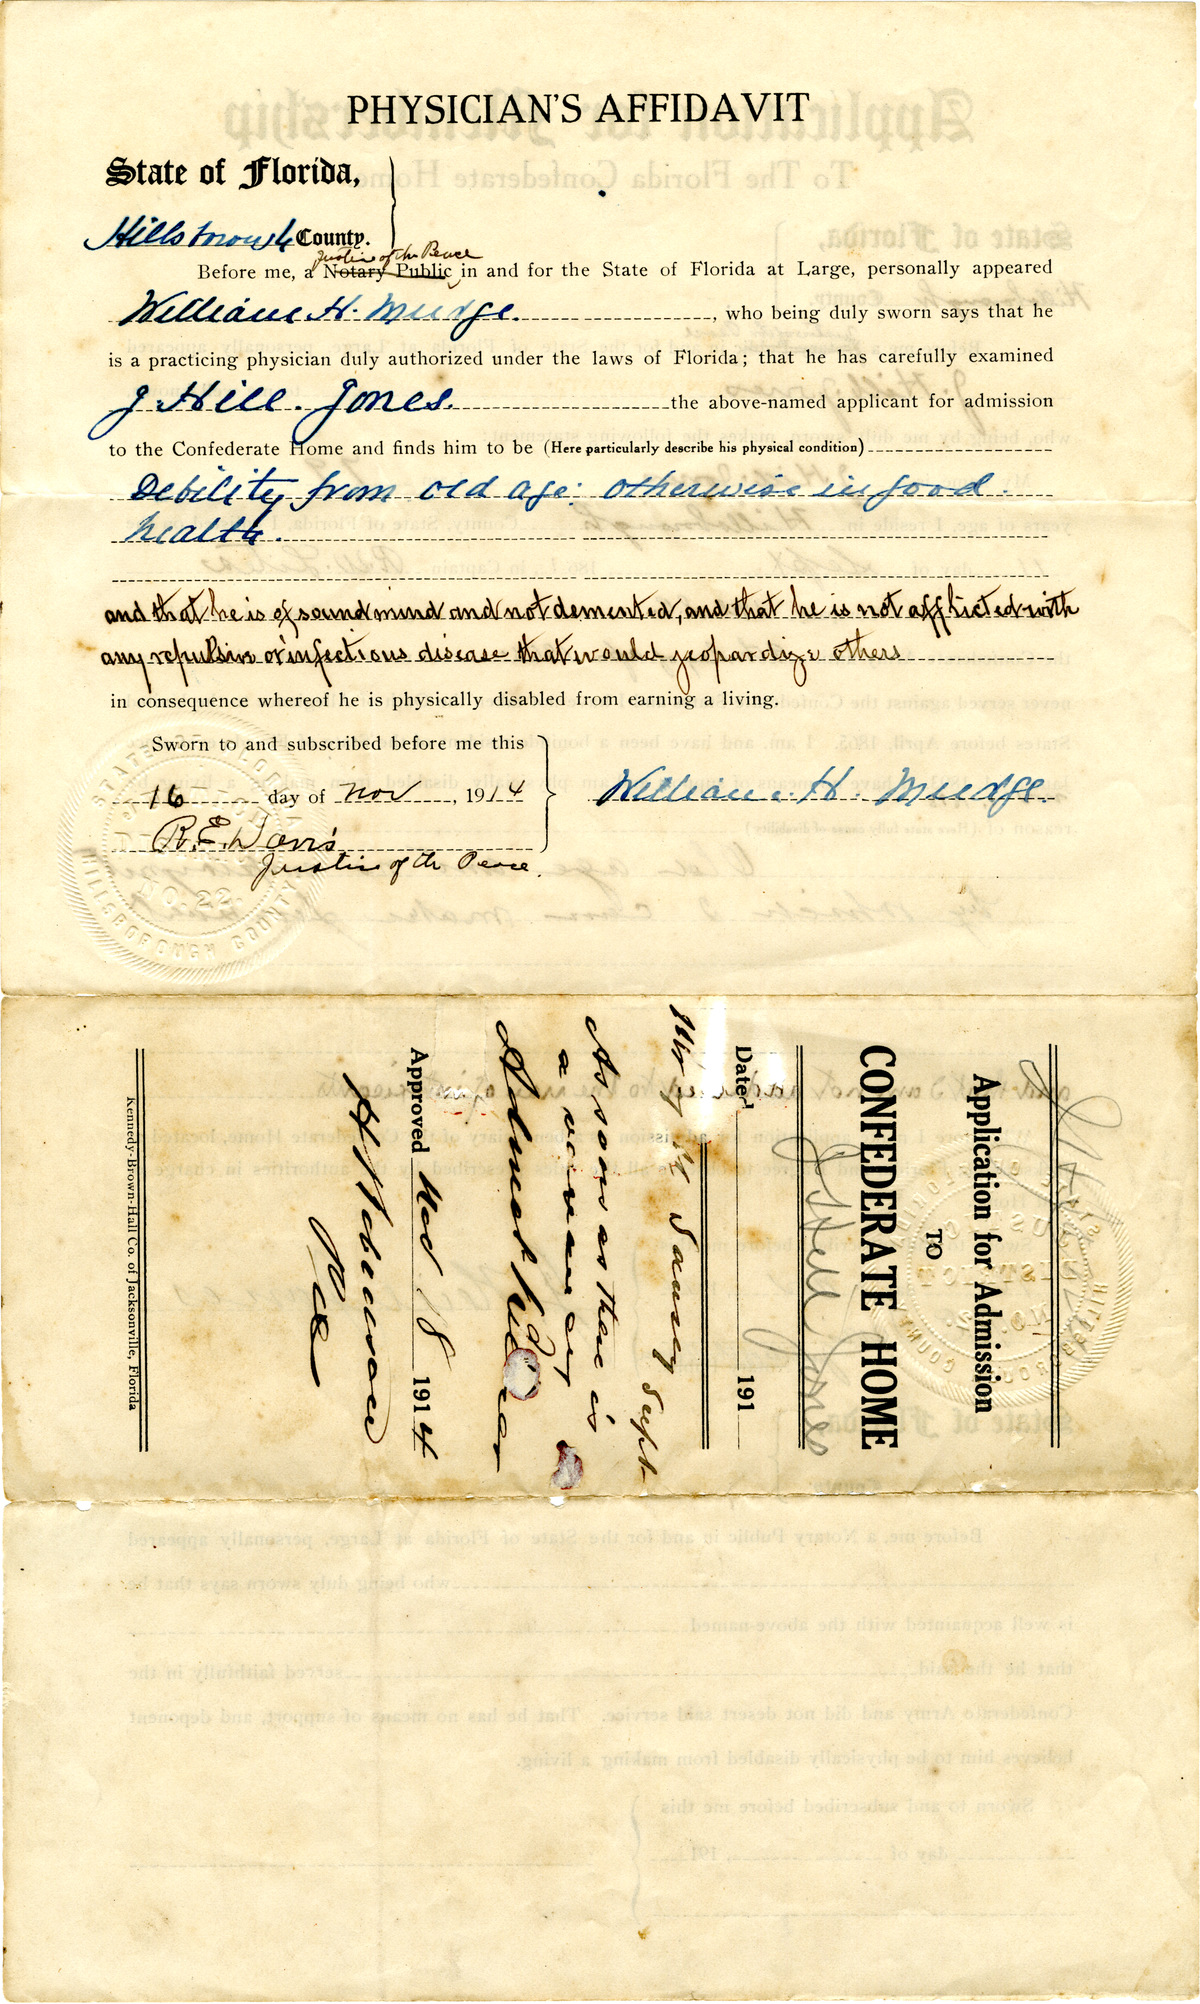 PHYSICIAN'S AFFIDAVIT
State of Florida,
Hillsborough County.
Justice of the Peace
Before me, a Notary Public, in and for the State of Florida at Large, personally appeared
William H. Mudge. , who being duly sworn says that he
is a practicing physician duly authorized under the laws of Florida; that he has carefully examined
J. Hill. Jones. the above-named applicant for admission
to the Confederate Home and finds him to be (Here particularly describe his physical condition)
Debility from old age: otherwise in good.
health.
and that he is of sound mind and not demented, and that he is not afflicted with
any repulsive or infectious disease that would jeopardize others
in consequence whereof he is physically disabled from earning a living.
Sworn to and subscribed before me this
16 day of Nov , 1914
William H. Mudge.
R. E. Davis
Justice of the Peace.
STATE OF FLORIDA
NO. 22.
HILLSBOROUGH COUNTY
Application for Admission
TO
CONFEDERATE HOME
J Hill Jones
Dated 191
Supt
As soon as there is
a vacancy
Admit
Approved Nov 18 1914
Kennedy-Brown-Hall Co. of Jacksonville, Florida